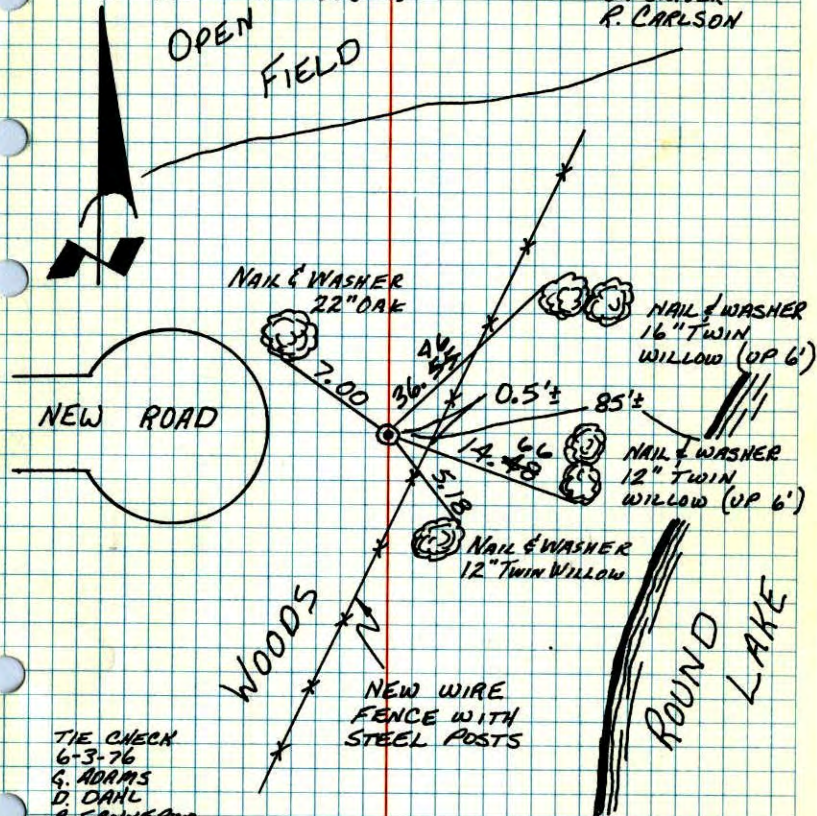 R. CARLSON
OPEN
FIELD
NAIL & WASHER
22" OAK
NAIL & WASHER
16" TWIN
WILLOW (UP 6')
7.00
36.
46
0.5'±
85'±
NEW ROAD
14.
66
48
NAIL & WASHER
12" TWIN
WILLOW (UP 6')
5.18
NAIL & WASHER
12" TWIN WILLOW
WOODS
NEW WIRE
FENCE WITH
STEEL POSTS
ROUND
LAKE
TIE CHECK
6-3-76
G. ADAMS
D. DAHL